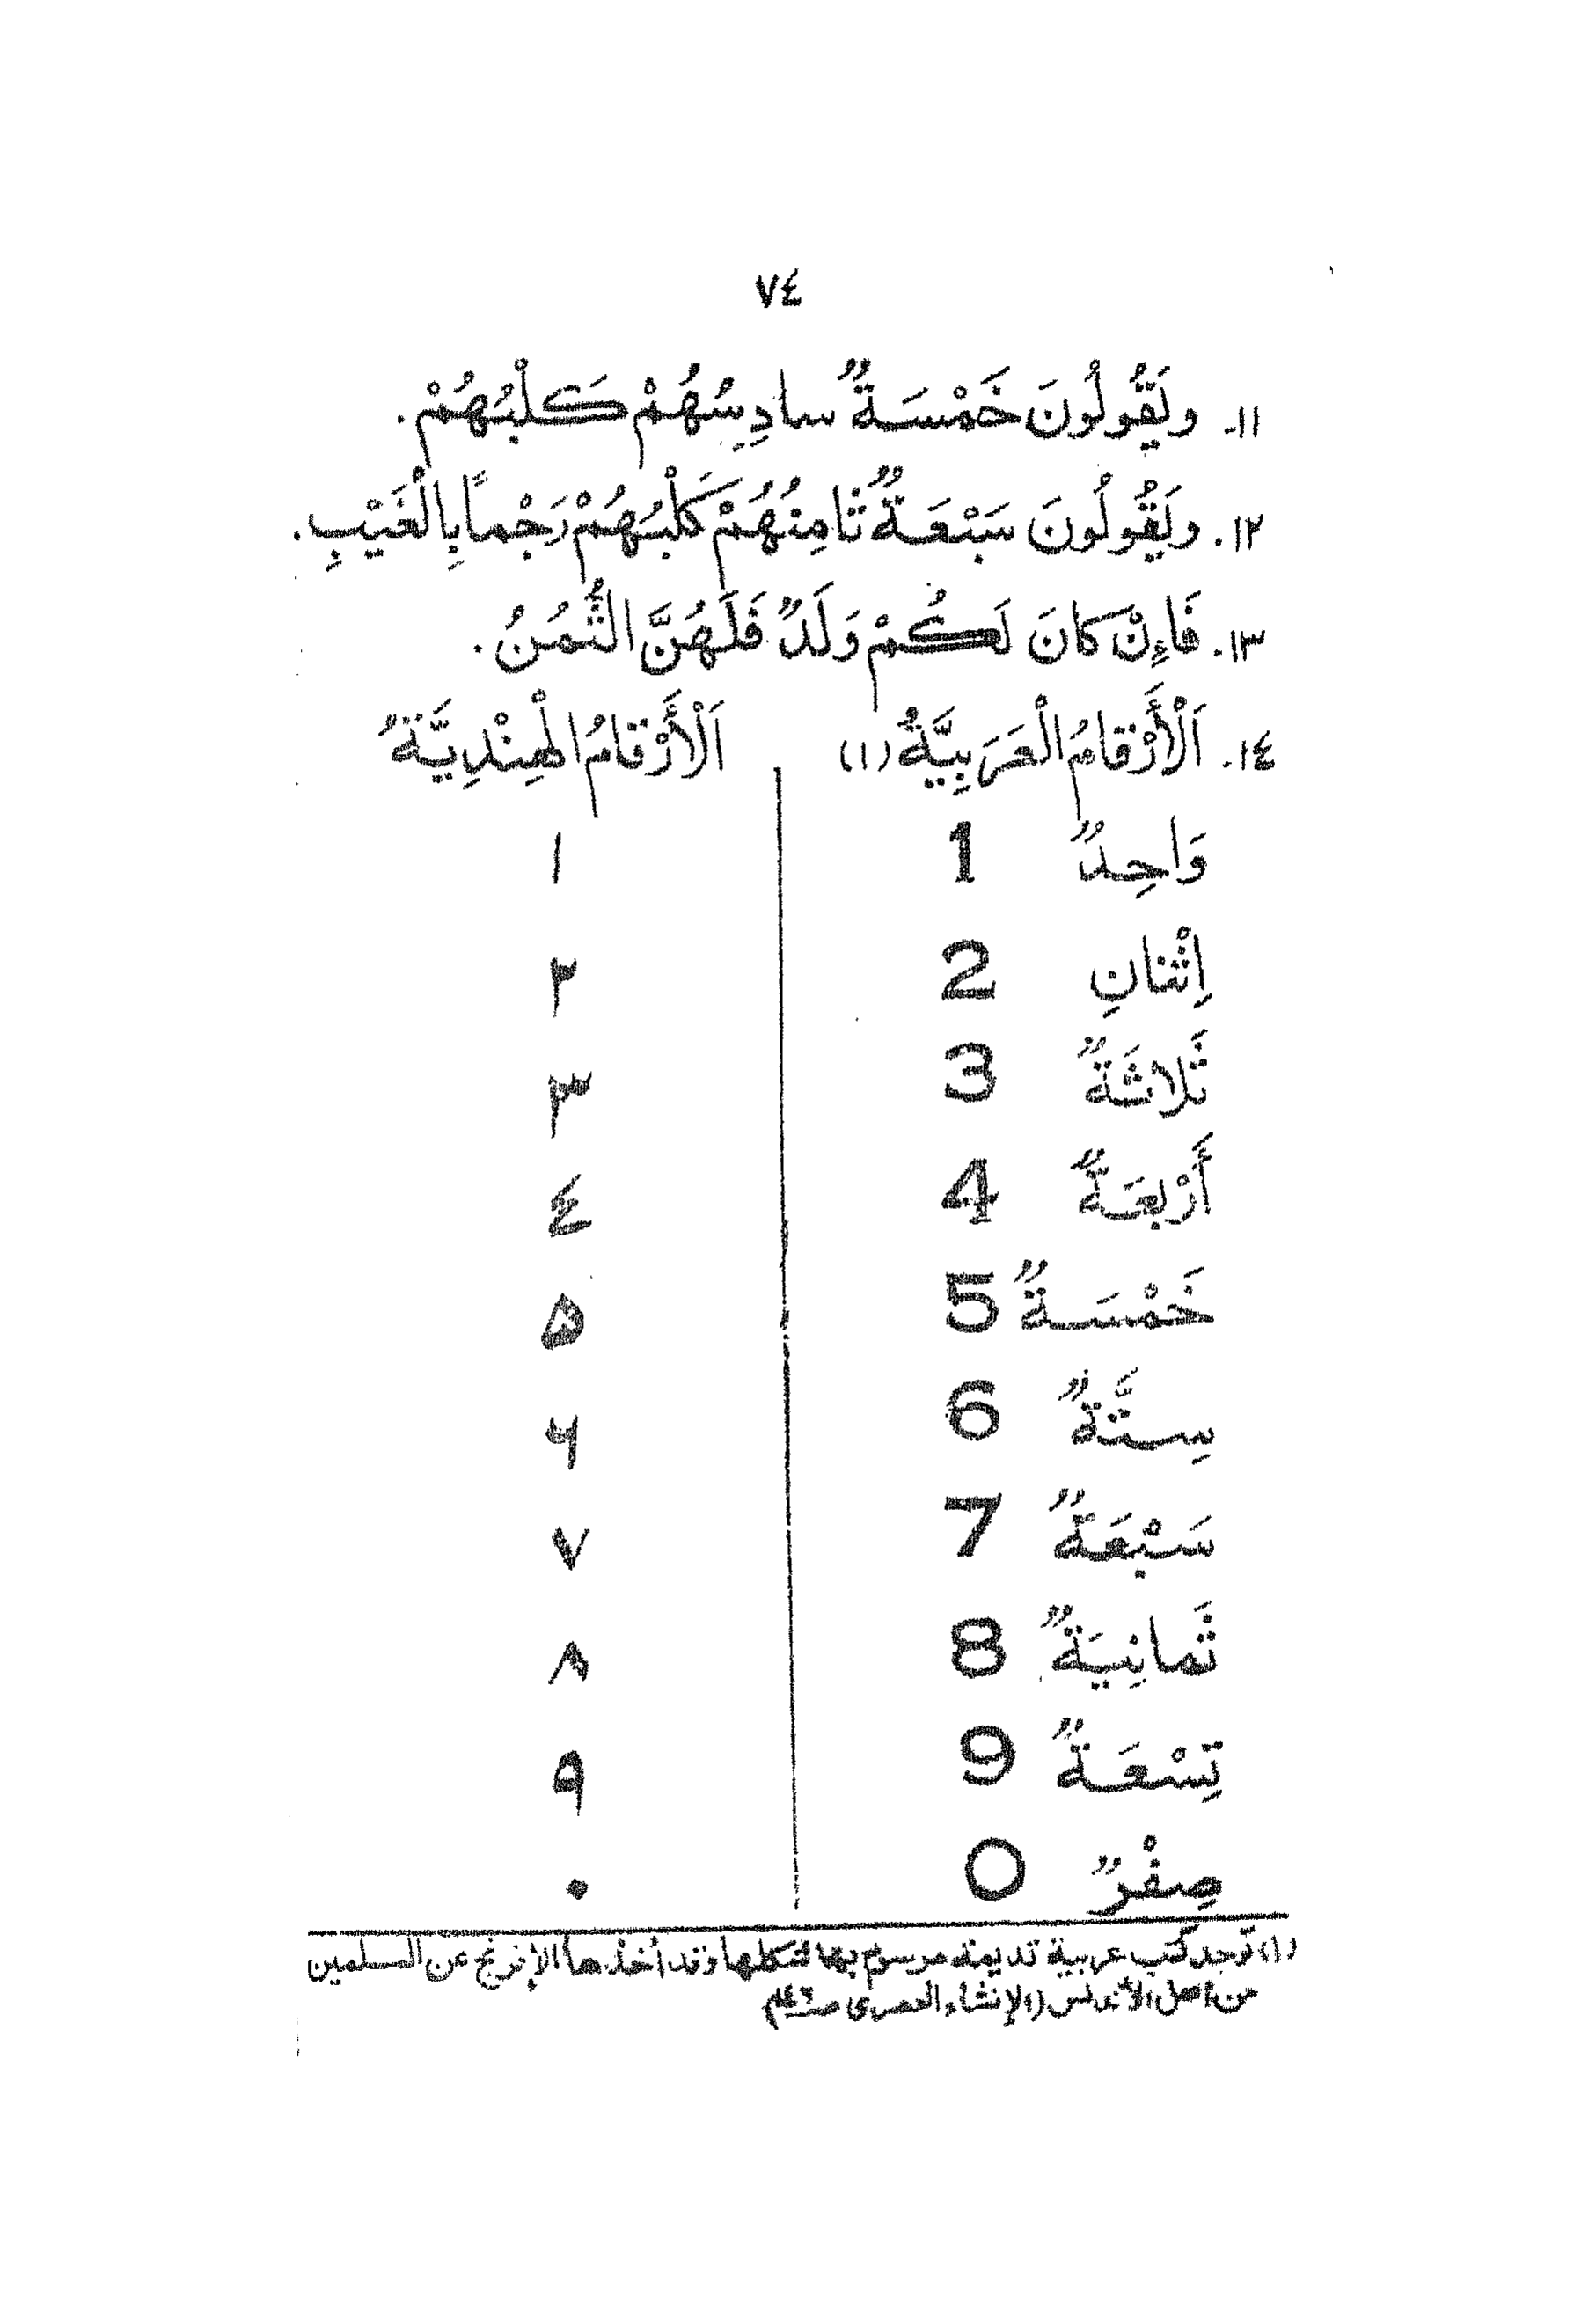 ٧٤
١١- ويَقُولُونَ خَمْسَةٌ سادِسُهُمْ كَلْبُهُمْ .
١٢. ويَقُولُونَ سَبْعَةٌ ثامِنُهُمْ كَلْبُهُمْ رَجْماً بِالْغَيْبِ .
١٣. فَاءِنْ كانَ لَكُمْ وَلَدٌ فَلَهُنَّ الثُّمُنُ .
١٤. اَلْأَرْقامُ الْعَرَبِيَّةُ (١) اَلْأَرْقامُ الْهِنْدِيَّةُ
وَاحِدٌ 1 ١
اِثْنانِ 2 ٢
ثَلاثَةٌ 3 ٣
أَرْبَعَةٌ 4 ٤
خَمْسَةٌ 5 ۵
سِتَّةٌ 6 ۶
سَبْعَةٌ 7 ٧
ثَمانِيَةٌ 8 ٨
تِسْعَةٌ 9 ٩
صِفْرٌ 0 ٠
(١) توجد كتب عربية قديمة مرسوم بها شكلها وقد أخذها الإفرنج عن المسلمين
من أهل الأندلس (الإنشاء العصرى